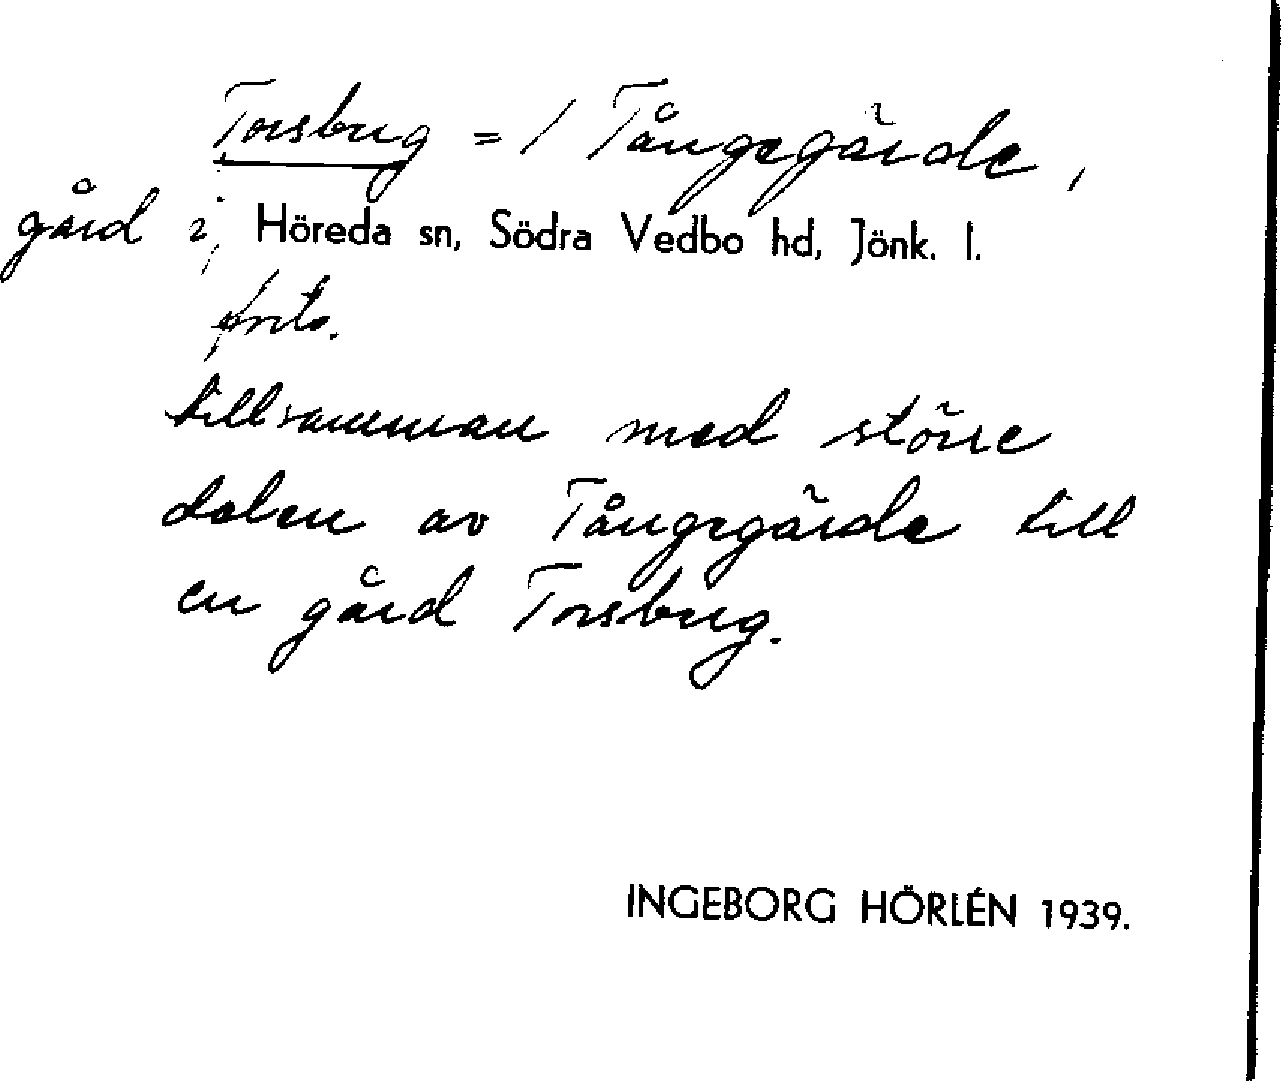 Torsbrug = / Tångegärde,
gård i, Höreda sn, Södra Vedbo hd, Jönk. l.
forts.
tillsamman med större
delen av Tångegärde till
en gård Torsbrug.
INGEBORG HÖRLÉN 1939.